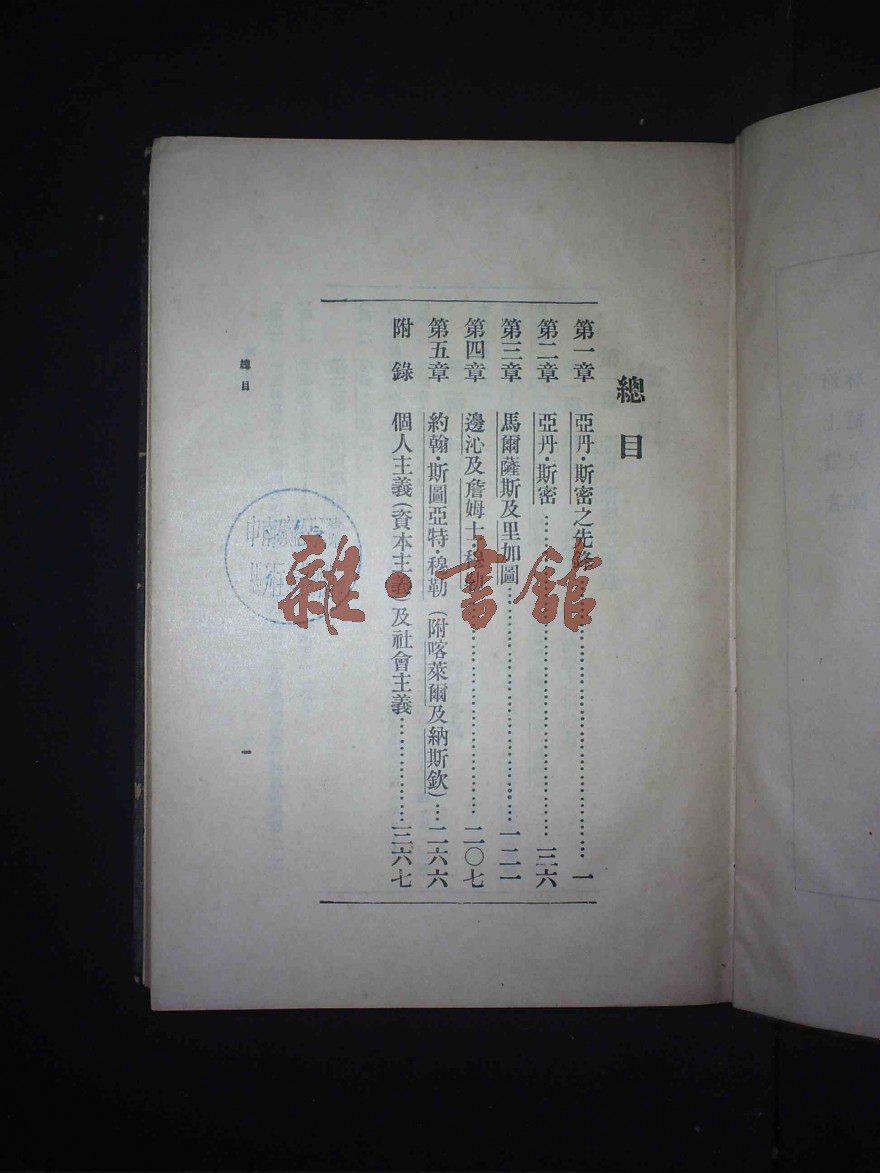 總目
第一章 亞丹·斯密之先鋒……一
第二章 亞丹·斯密……三六
第三章 馬爾薩斯及里加圖……一二一
第四章 邊沁及詹姆士·穆勒……二〇七
第五章 約翰·斯圖亞特·穆勒(附喀萊爾及納斯欽)…二六六
附錄 個人主義(資本主義)及社會主義……三六七
總目
一
雜·書館